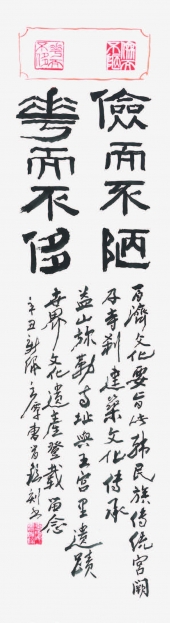 儉而不陋
華而不侈
百濟文化要旨此韩民族傳統宮闕
及寺刹建築文化傳承
益山弥勒寺址與王宮里遺蹟
世界文化遺産登載留念
辛丑新𥙷